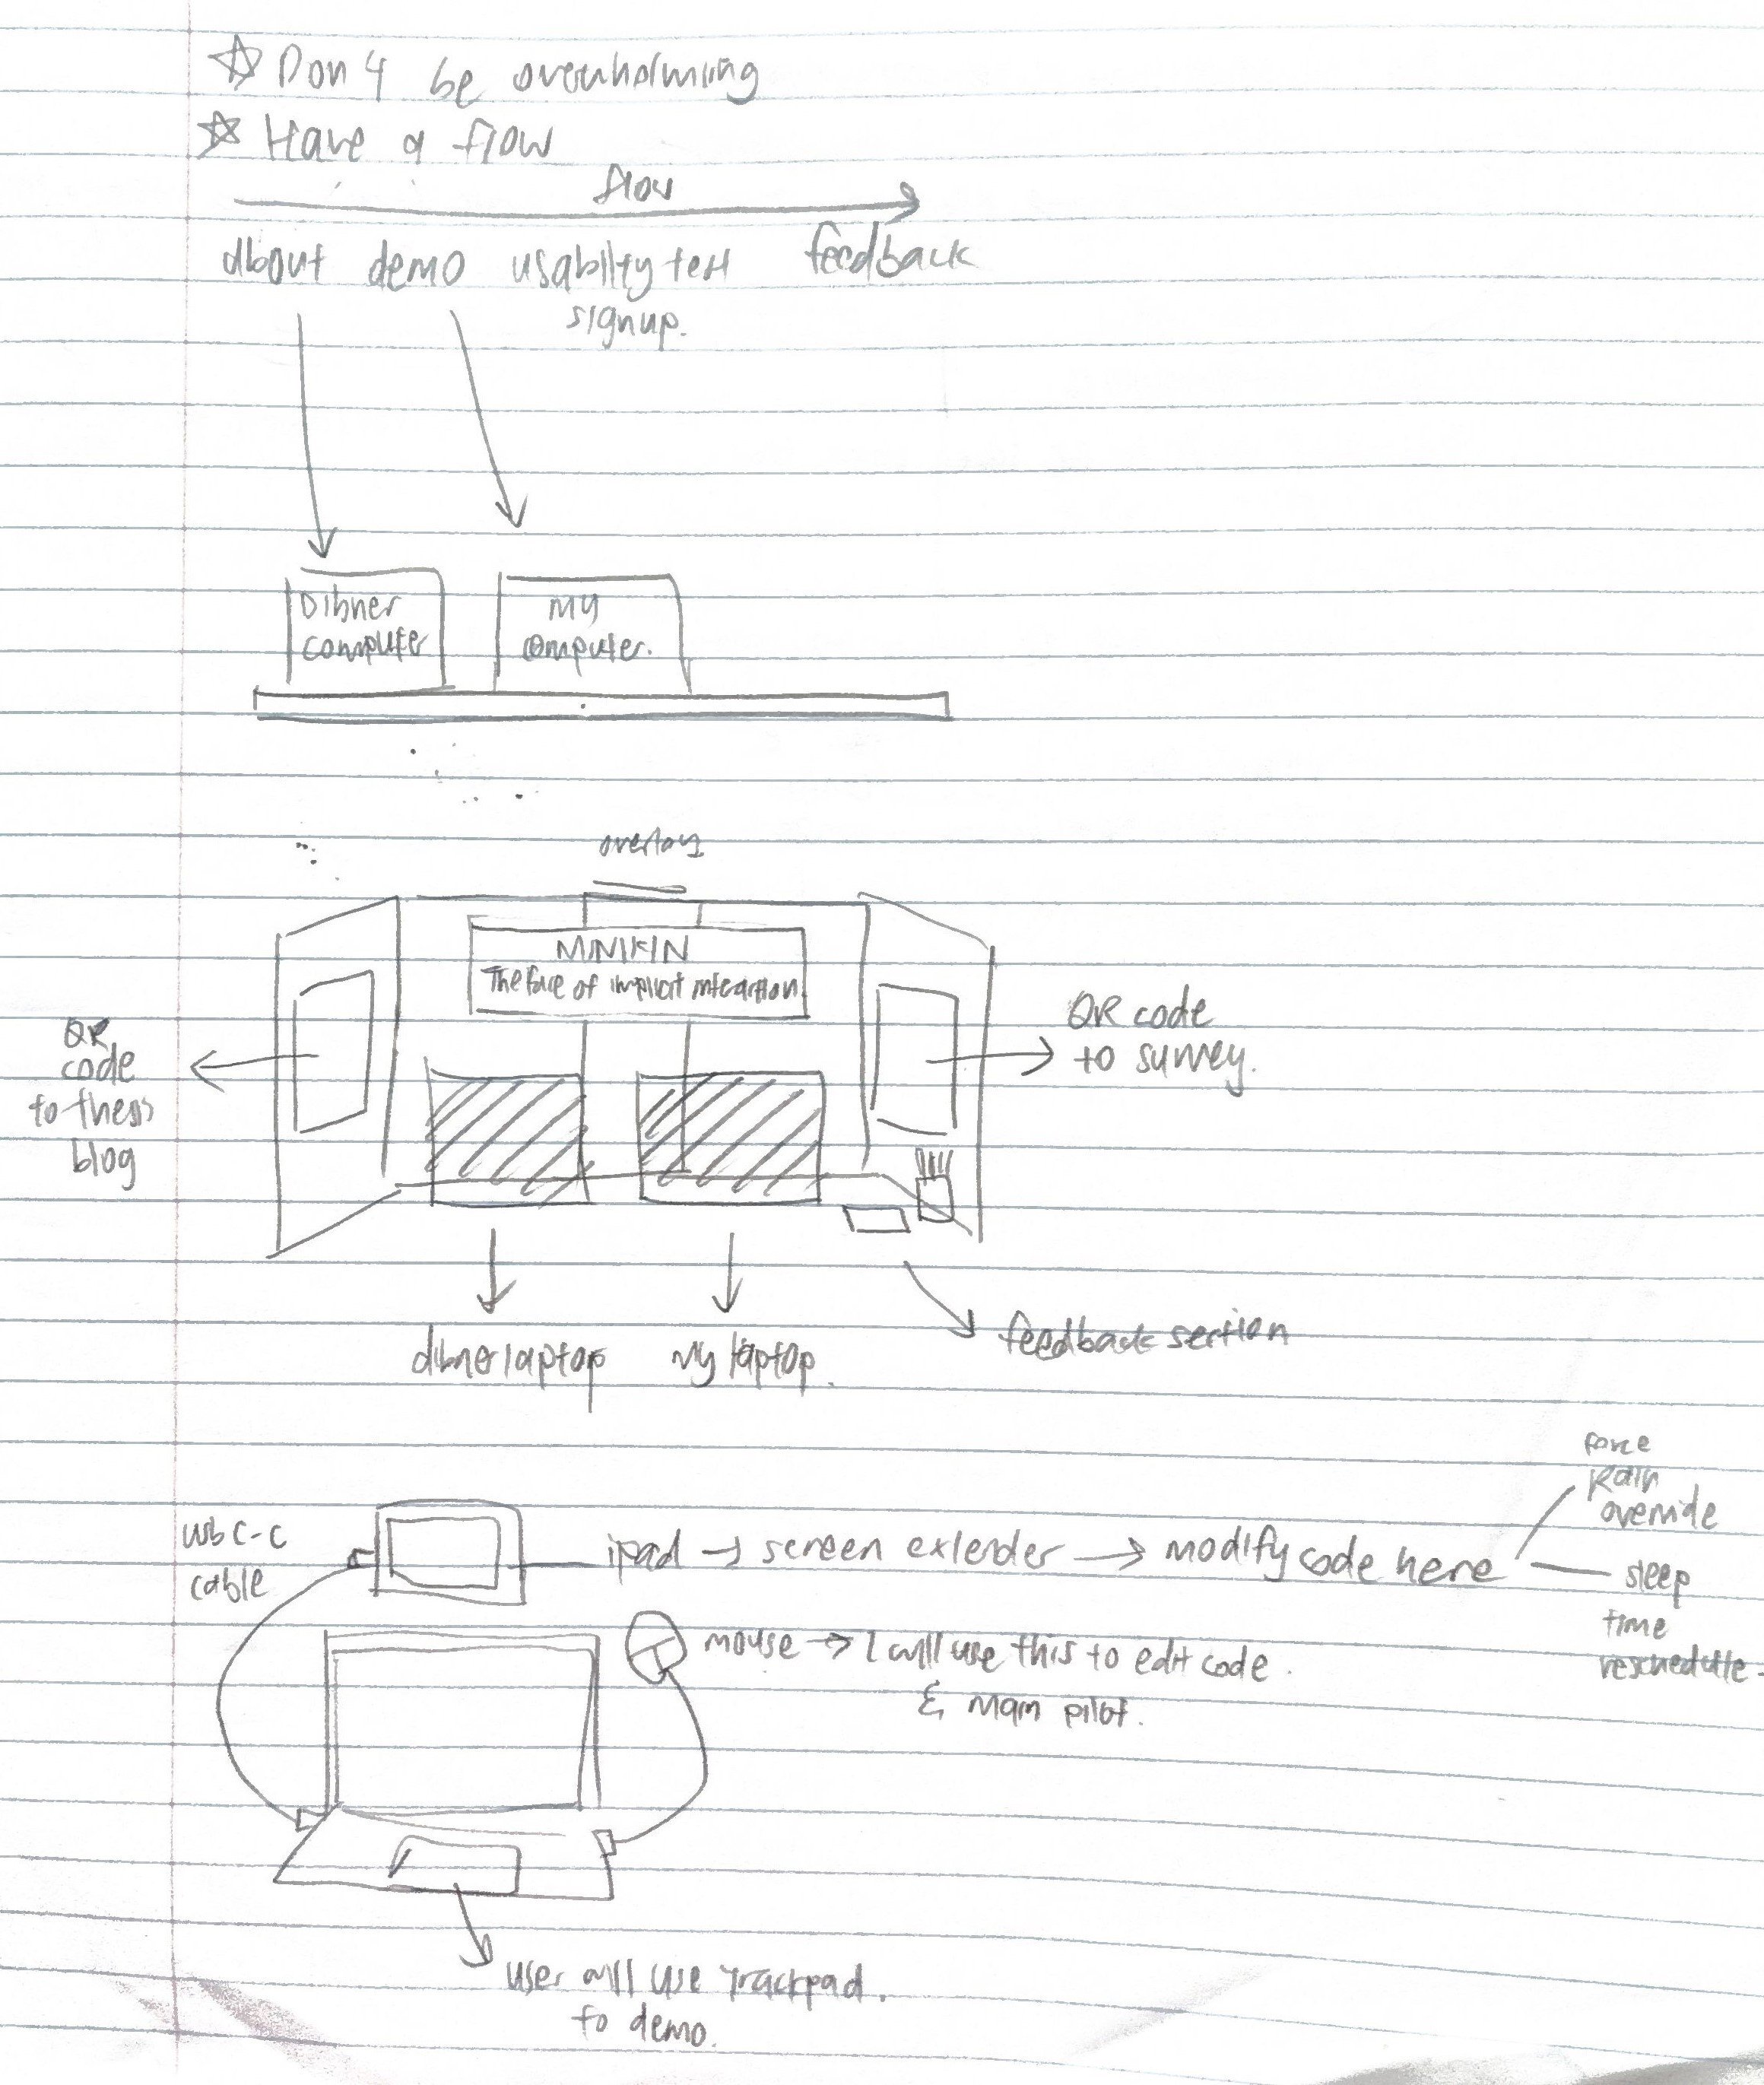 Don't be overwhelming
Have a flow
flow
about demo usability test feedback
signup.
Dibner
computer
my
computer.
overlay
MINIKIN
The face of implicit interaction
QR
code
to thesis
blog
QR code
to survey.
dibner laptop
my laptop.
feedback section
usb c-c
cable
ipad → screen extender → modify code here
force
rain
override
sleep
time
reschedule
mouse → I will use this to edit code
& main pilot.
user will use trackpad.
to demo.